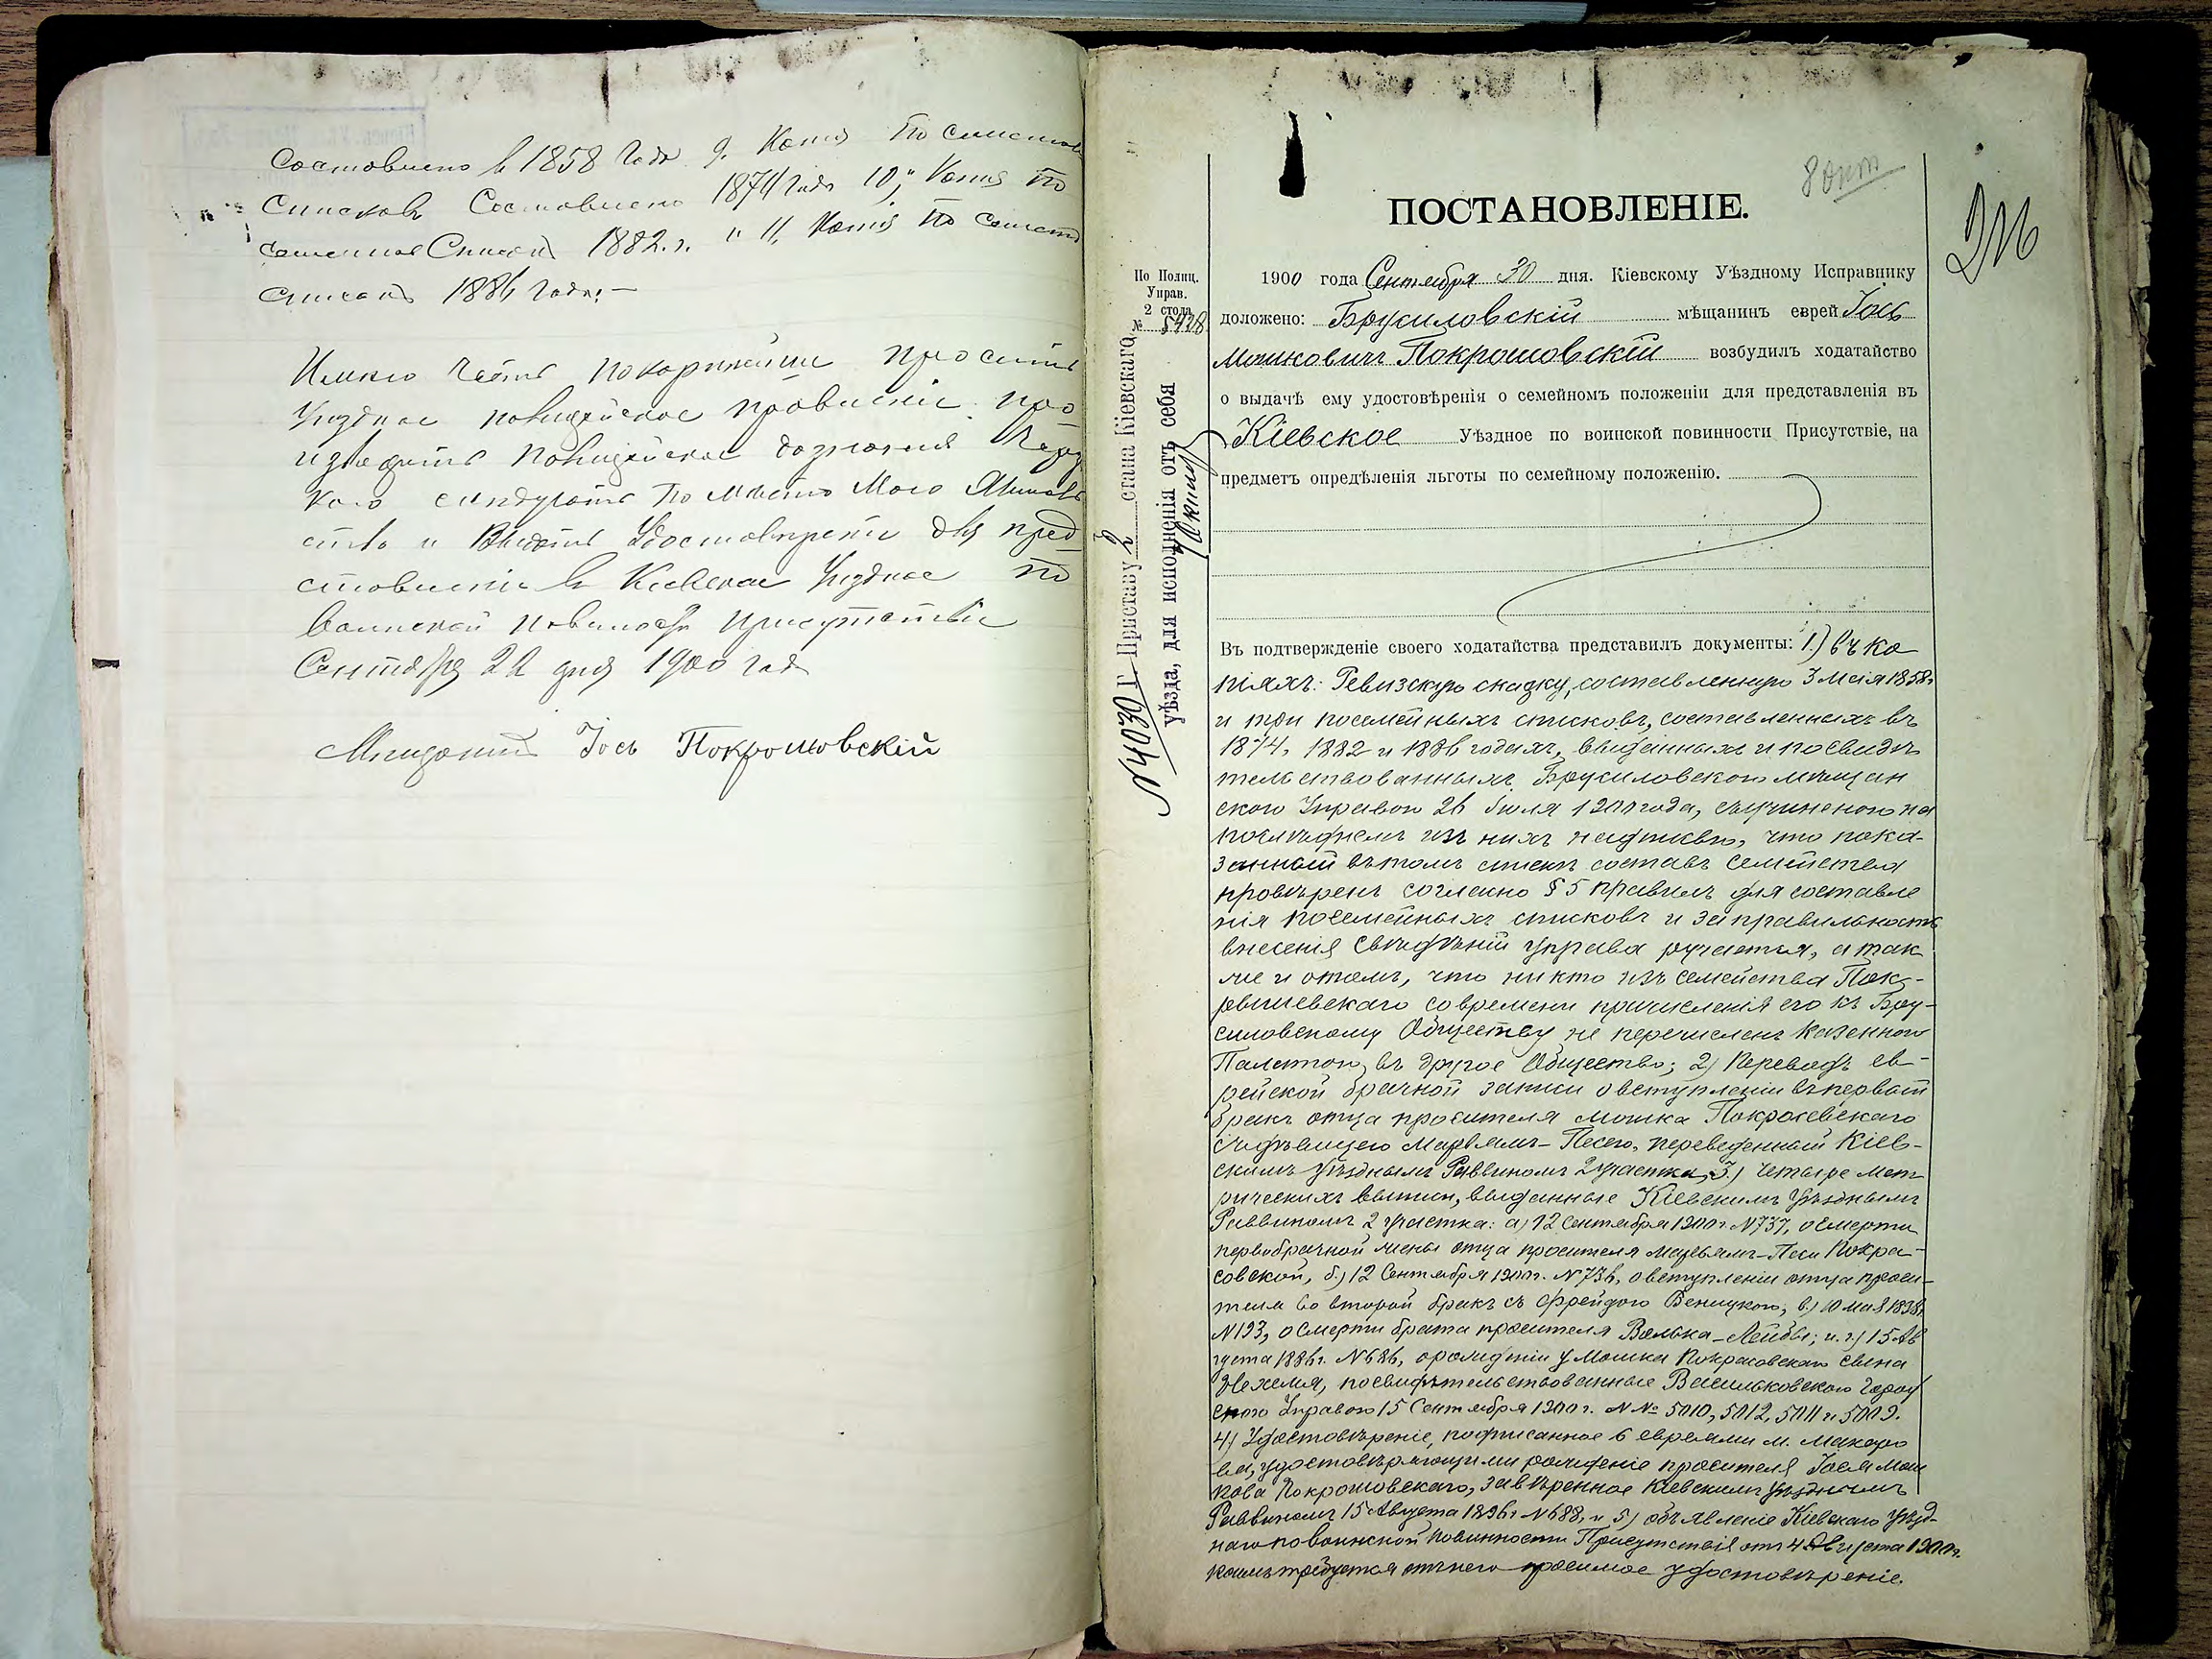 Составлено в 1858 году 9. Копія По
Списковъ Составлено 1874 года 10; Копія по
Списокъ 1882 г. " 11, Копія По
Списокъ 1886 года: —
Имѣю Честь покорнейши просить
Уездное полицейское
полицейское дознанія
по место Моего
и Выдать для пред
в Киевское Уездное по
Воинской повиности присутствіе
Сентября 22 дня 1900 год
Мещанин Іось Покрошовскій
8 окт
216
ПОСТАНОВЛЕНІЕ.
По Полиц.
Управ.
2 стола
№ 5428
1900 года Сентября 30 дня. Кіевскому Уѣздному Исправнику
доложено: Брусиловскій мѣщанинъ еврей Іось
Мошковичъ Покрошовскій возбудилъ ходатайство
о выдачѣ ему удостовѣренія о семейномъ положеніи для представленія въ
Кіевское Уѣздное по воинской повинности Присутствіе, на
предметъ опредѣленія льготы по семейному положенію.
Приставу 2 стана Кіевскаго
уѣзда, для исполненія отъ себя
Въ подтвержденіе своего ходатайства представилъ документы: 1.) въ ко
піяхъ: Ревизскую сказку, составленную 3 Мая 1858 г
и три посемейныхъ списковъ, составленныхъ въ
1874, 1882 и 1886 годахъ, выданныхъ и посвидѣ
тельствованныхъ Брусиловскою мѣщан
скою Управою 26 Іюля 1900 года, съ учиненою на
послѣднемъ изъ нихъ надписью, что пока-
занный въ томъ списке составъ Семейства
провѣренъ согласно § 5 правилъ для составле
нія посемейныхъ списковъ и за правильность
внесенія Свѣдѣній управа ручается, а так
же и о томъ, что никто изъ семейства Пок-
рышевскаго со времени причисленія его къ Бру-
силовскому Обществу не перечисленъ Казенною
Палатою въ другое Общество; 2) Переводъ ев-
рейской брачной записи о вступленіи въ первый
бракъ отца просителя Мошка Покрасевскаго
съ дѣвицею Марьямъ-Песею, переведенный Кіев-
скимъ Уѣзднымъ Раввиномъ 2 участка, 3.) четыре мет
рическихъ выписи, выданные Кіевскимъ Уѣзднымъ
Раввиномъ 2 участка: а) 12 Сентября 1900 г. № 737, о смерти
первобрачной жены отца просителя Марьямъ-Песи Покра-
совской, б.) 12 Сентября 1900 г. № 736, о вступленіи отца проси-
теля во второй бракъ съ Фрейдою Веницкою, в.) 10 Мая
№ 193, о смерти брата просителя Волька-Лейбы; и г.) 15 Ав
густа 1886 г. № 686, о рожденіи у Мошка Покрасовскаго сына
Нехемія, посвидѣтельствованные Васильковскою Город
скою Управою 15 Сентября 1900 г. № № 5010, 5012, 5011 и 5009.
4) Удостовѣреніе, подписанное 6 евреями м. Макаро
ва, удостовѣряющими рожденіе просителя Іося Мош
кова Покрошовскаго, завѣренное Кіевскимъ Уѣзднымъ
Раввиномъ 15 Августа 1896 г № 688, и 5) объявленіе Кіевскаго Уѣзд-
наго по воинской повинности Присутствія отъ 4 Августа 1900 г.
коимъ требуется отъ него просимое удостовѣреніе.